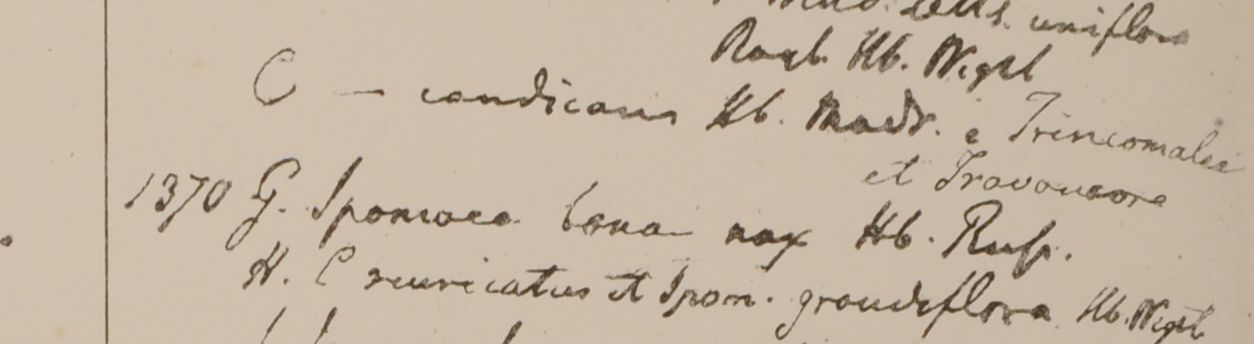 uniflora
Roxb. Hb. Wight
C — candicans Hb. Madr. e Trincomalee
et Travancore
1370 G. Ipomoea bona nox Hb. Russ.
H. C muricatus et Ipom. grandiflora Hb. Wight